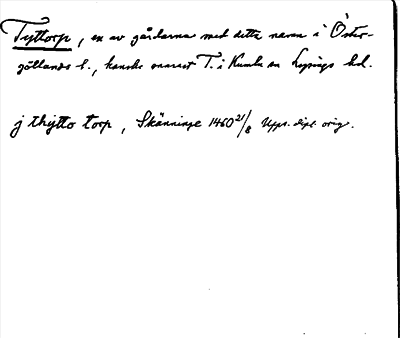 Tyttorp, en av gårdarna med detta namn i Öster-
götlands l., kanske snarast T. i Kumla sn Lysings hd.
j thytto torp, Skänninge 1460 21/8 Upps. dipl. orig.